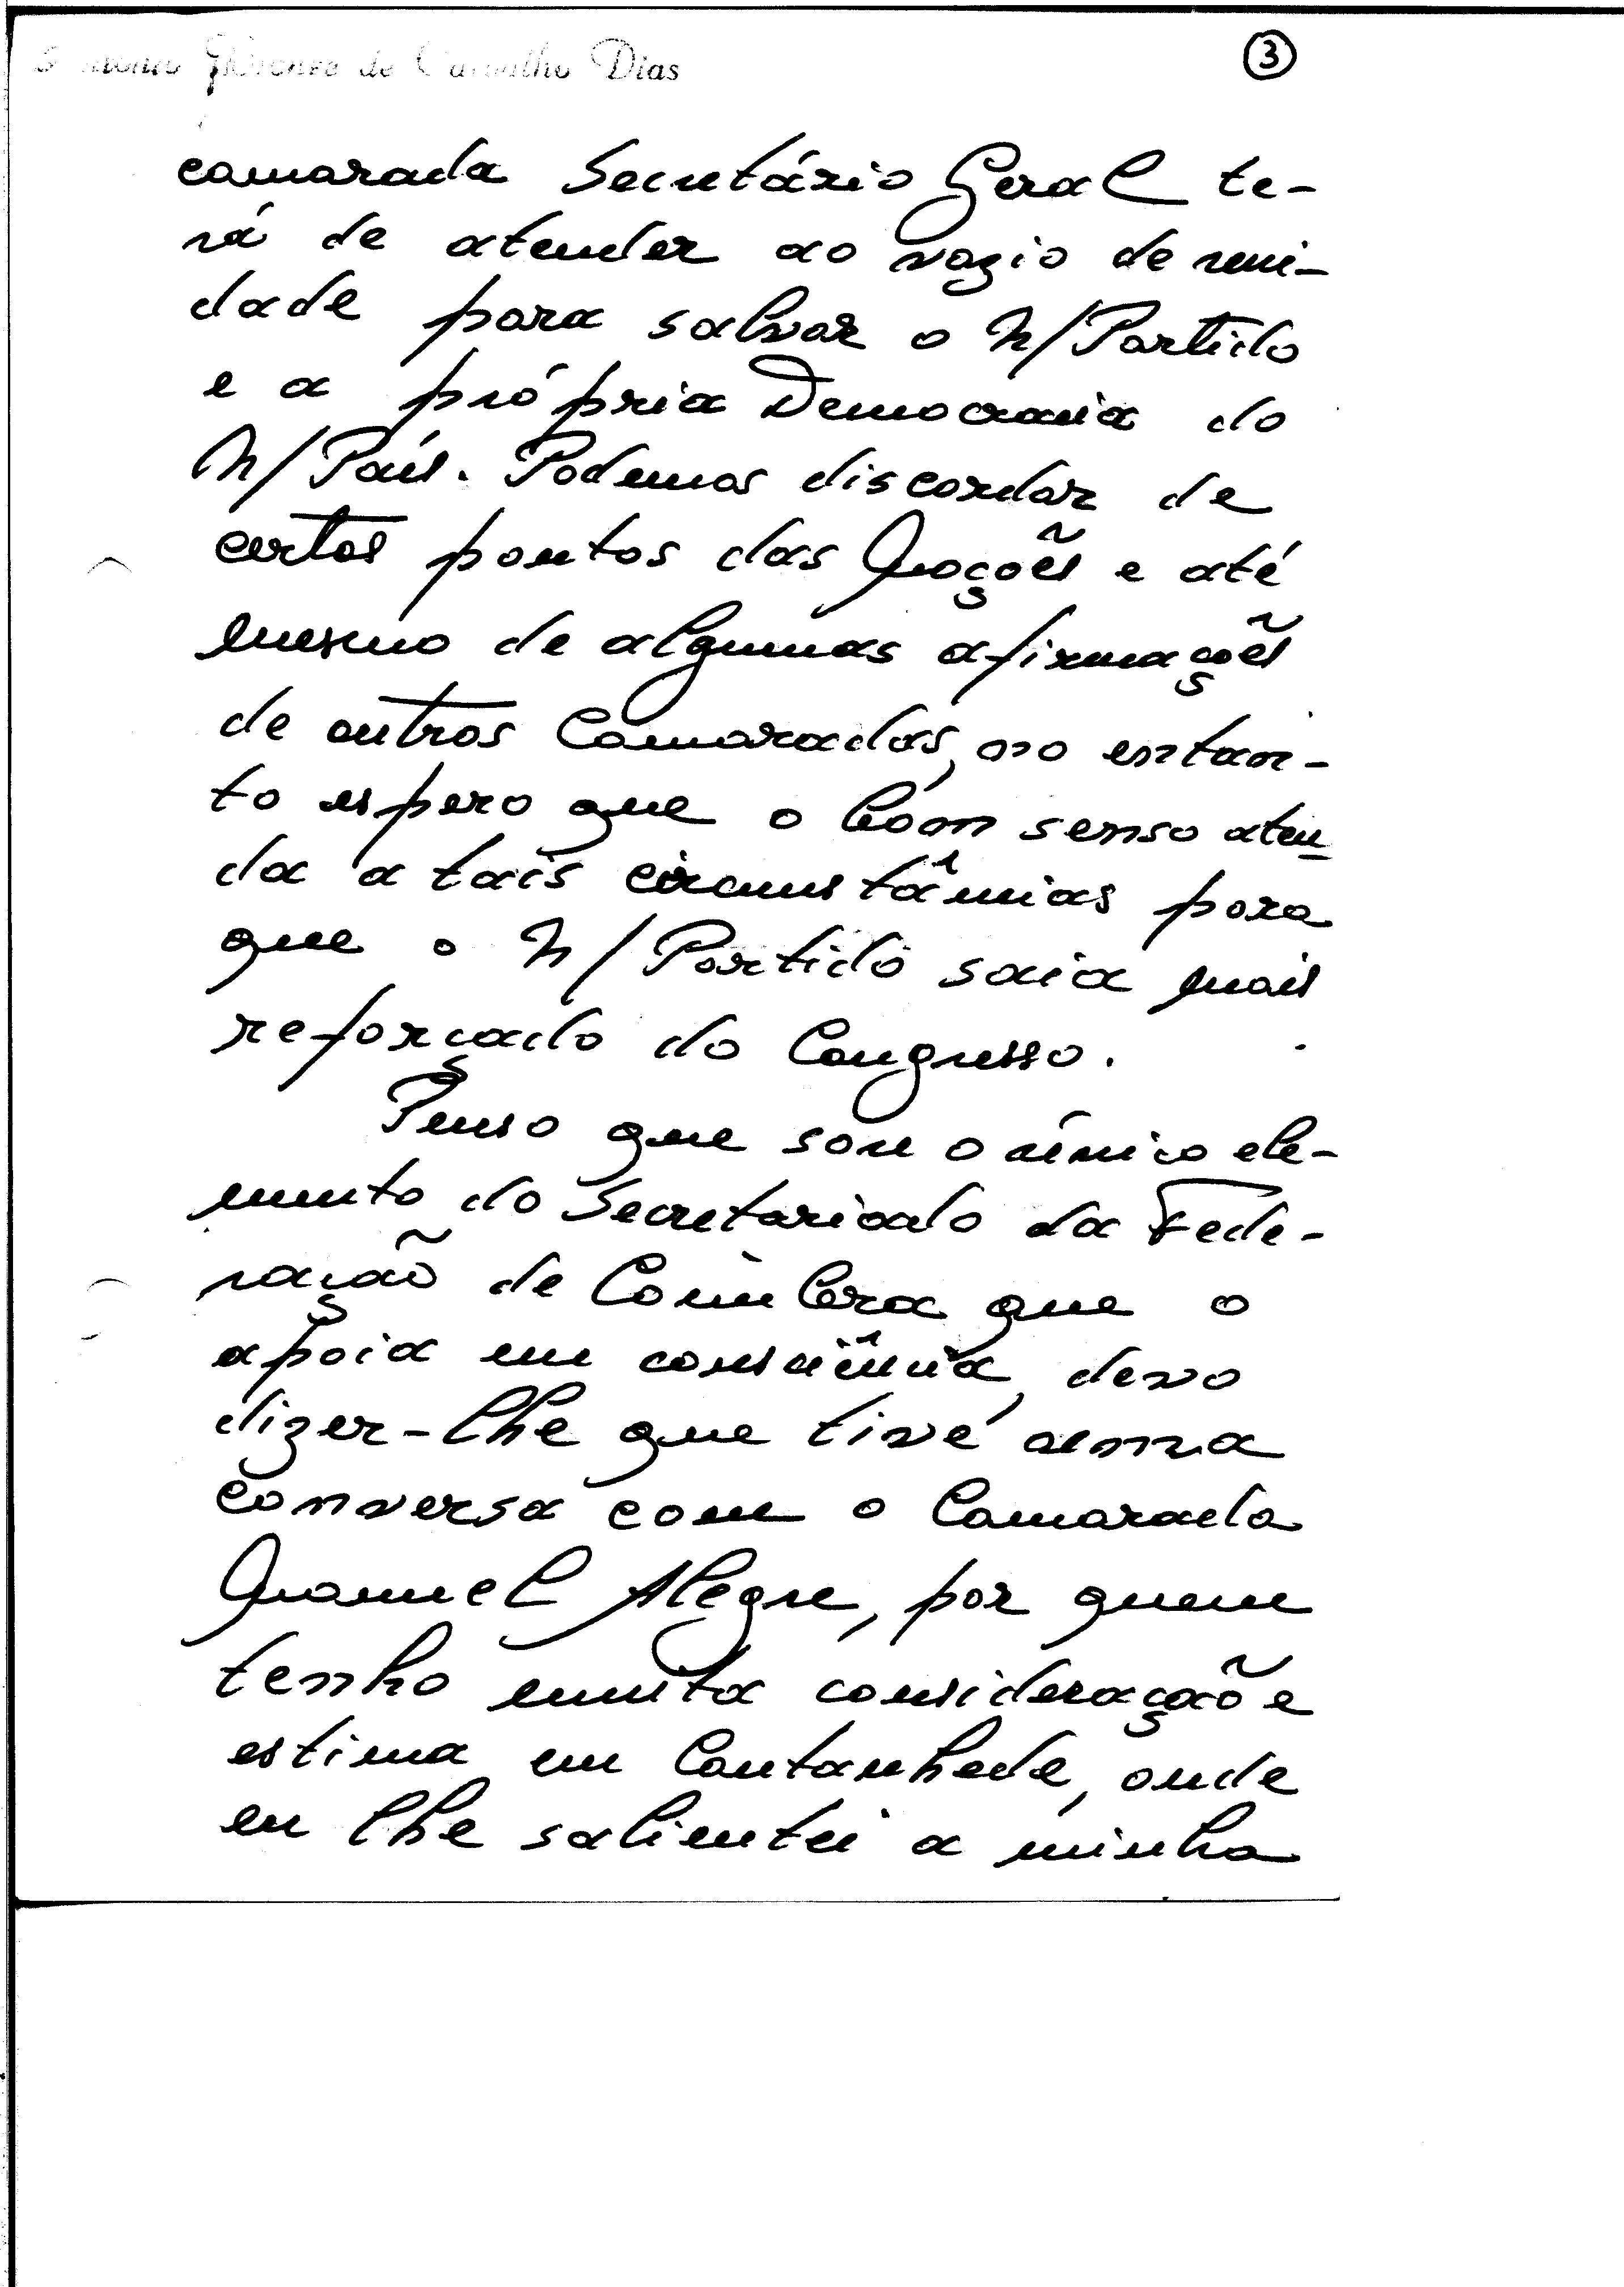 de Carvalho Dias
3
camarada Secretário Geral te-
rá de atender ao vazio de uni-
dade para salvar o N/Partido
e a própria Democracia do
N/País. Podemos discordar de
certos pontos das Moções e até
mesmo de algumas afirmações
de outros Camaradas, no entan-
to espero que o bom senso aten-
da a tais circunstâncias para
que o N/Partido saia mais
reforçado do Congresso.
Penso que sou o único ele-
mento do Secretariado da Fede-
ração de Coimbra que o
apoia em consciência, devo
dizer-lhe que tive uma
conversa com o Camarada
Manuel Alegre, por quem
tenho muita consideração e
estima em Cantanhede, onde
eu lhe salientei a minha